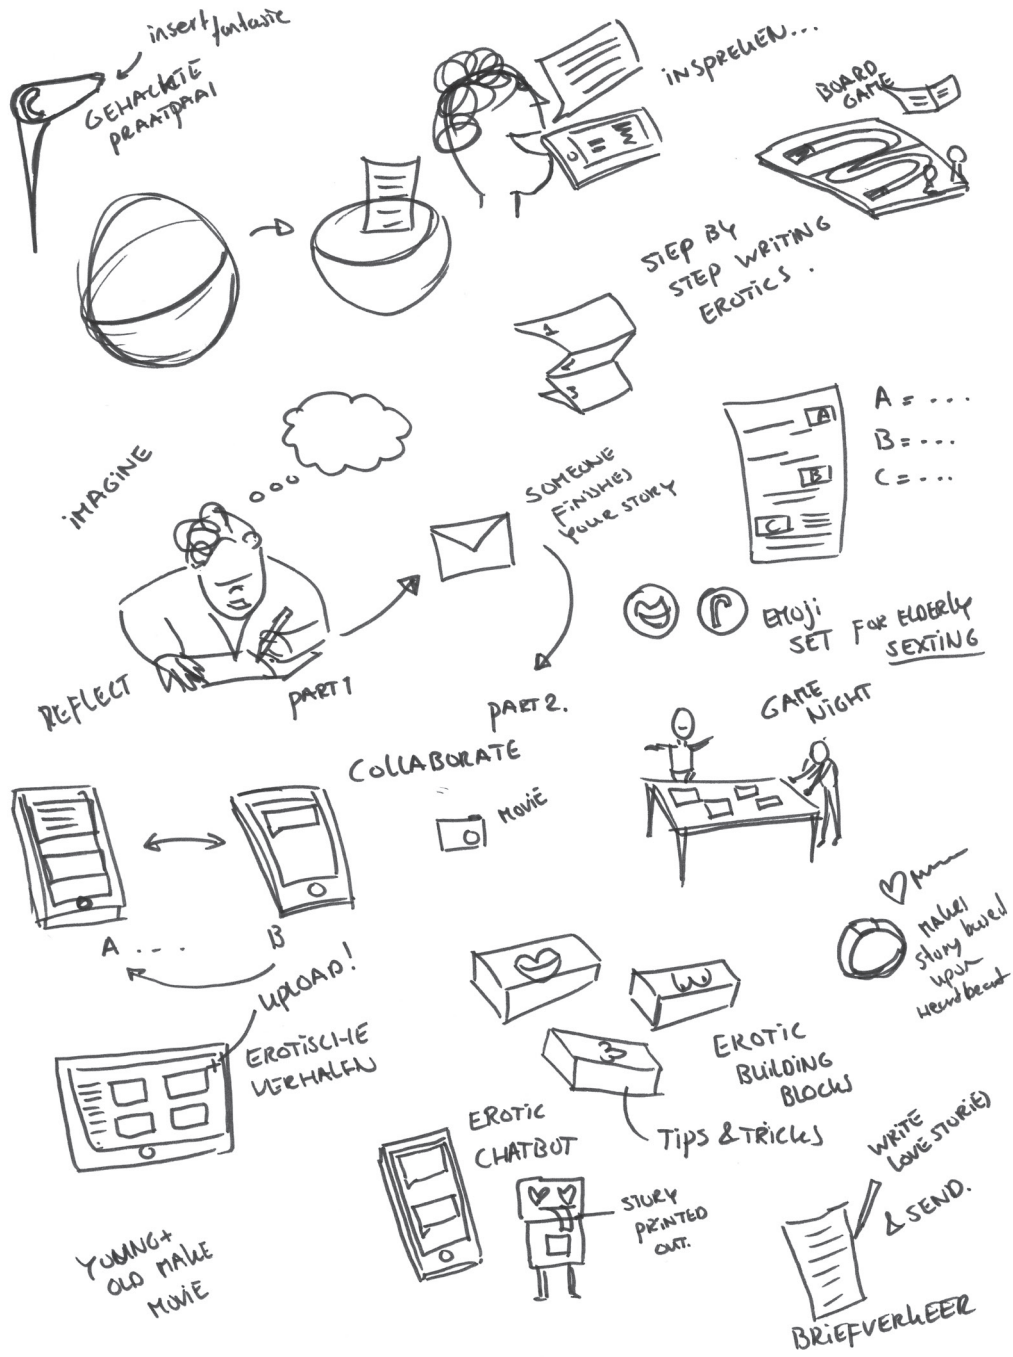 insert fantasie
GEHACKTE
PRAATPAAL
INSPREKEN...
BOARD
GAME
STEP BY
STEP WRITING
EROTICS.
1
2
3
A = ...
B = ...
C = ...
A
B
C
IMAGINE
SOMEONE
FINISHES
YOUR STORY
EMOJI
SET FOR ELDERLY
SEXTING
REFLECT
PART 1
PART 2.
COLLABORATE
GAME
NIGHT
MOVIE
A ....
B
UPLOAD!
EROTISCHE
VERHALEN
makes
story based
upon
heartbeat
EROTIC
BUILDING
BLOCKS
TIPS & TRICKS
EROTIC
CHATBOT
STORY
PRINTED
OUT.
WRITE
LOVE STORIES
& SEND.
BRIEFVERKEER
YOUNG +
OLD MAKE
MOVIE